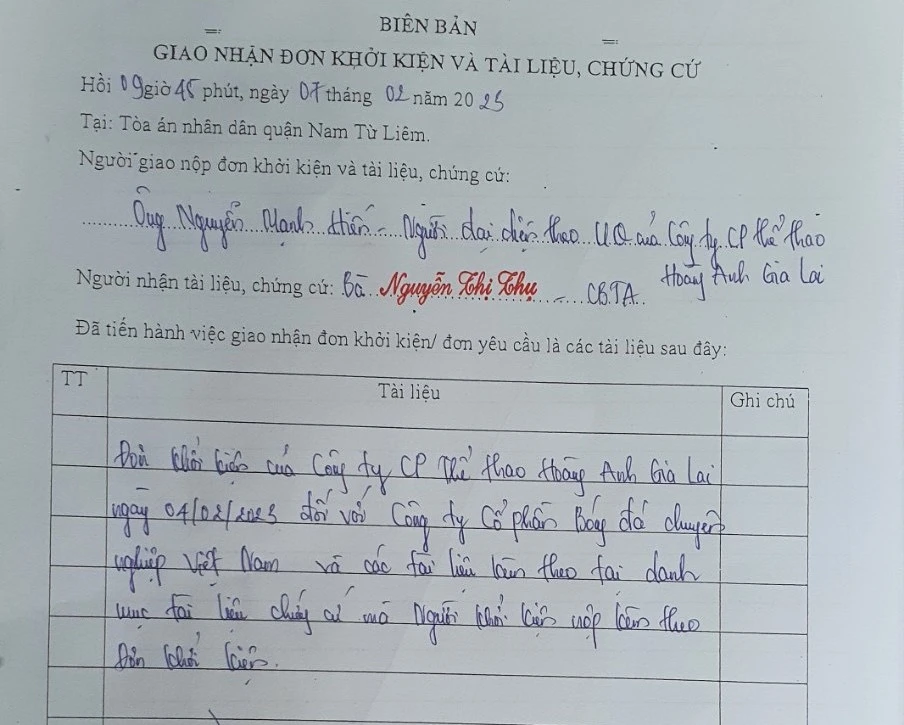 BIÊN BẢN
GIAO NHẬN ĐƠN KHỞI KIỆN VÀ TÀI LIỆU, CHỨNG CỨ
Hồi 09 giờ 45 phút, ngày 07 tháng 02 năm 2023
Tại: Tòa án nhân dân quận Nam Từ Liêm.
Người giao nộp đơn khởi kiện và tài liệu, chứng cứ:
Ông Nguyễn Mạnh Hiến - Người đại diện theo U.Q của Công ty CP thể thao
Hoàng Anh Gia Lai
Người nhận tài liệu, chứng cứ: Bà Nguyễn Thị Thụ - CBTA.
Đã tiến hành việc giao nhận đơn khởi kiện/ đơn yêu cầu là các tài liệu sau đây:
TT Tài liệu Ghi chú
Đơn khởi kiện của Công ty CP Thể thao Hoàng Anh Gia Lai
ngày 04/02/2023 đối với Công ty Cổ phần Bóng đá chuyên
nghiệp Việt Nam và các tài liệu kèm theo tại danh
mục tài liệu chứng cứ mà Người khởi kiện nộp kèm theo
Đơn khởi kiện.